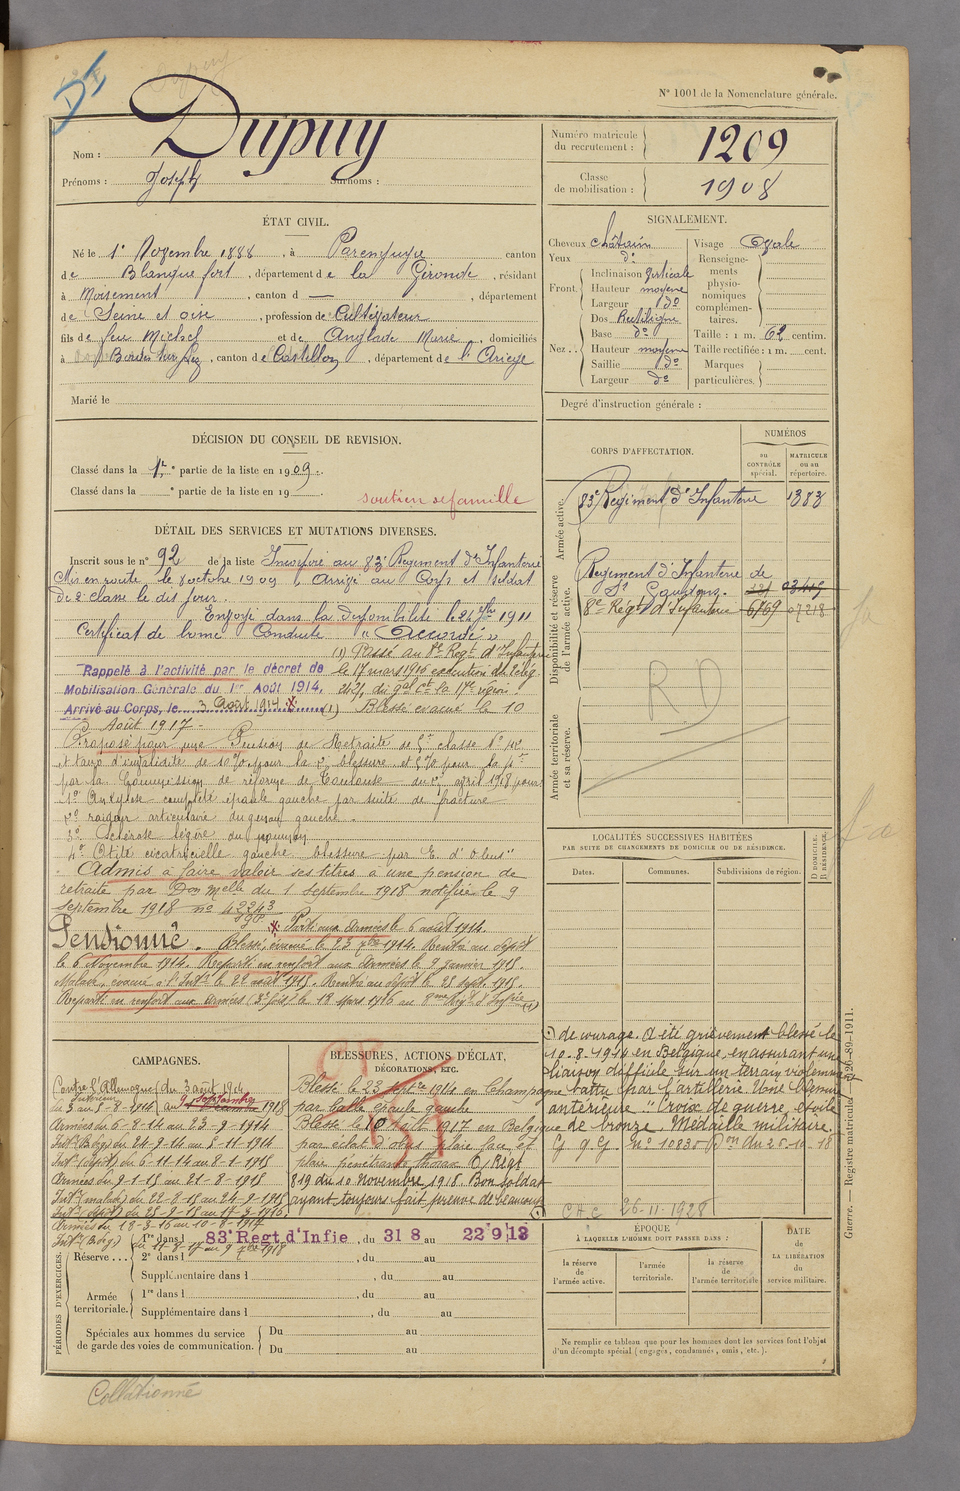 N° 1001 de la Nomenclature générale.
Nom : Dupuy
Prénoms : Joseph Surnoms :
Numéro matricule du recrutement : 1209
Classe de mobilisation : 1908
ÉTAT CIVIL.
Né le 1er Novembre 1888, à Parempuyre canton
de Blanquefort, département de la Gironde, résidant
à Moisement, canton d —, département
de Seine et oise, profession de Cultivateur
fils de feu Michel et de Anglade Marie, domiciliés
à Bordes sur Lez, canton de Castillon, département de l'Ariège
Marié le
SIGNALEMENT.
Cheveux châtain
Yeux do
Front. Inclinaison verticale
Hauteur moyenne
Largeur do
Nez.. Dos Rectiligne
Base do
Hauteur moyenne
Saillie do
Largeur do
Visage Ovale
Renseignements physionomiques complémentaires.
Taille : 1 m. 62 centim.
Taille rectifiée : 1 m. cent.
Marques particulières.
Degré d'instruction générale :
DÉCISION DU CONSEIL DE REVISION.
Classé dans la 1re partie de la liste en 1909.
Classé dans la e partie de la liste en 19
soutien de famille
DÉTAIL DES SERVICES ET MUTATIONS DIVERSES.
Inscrit sous le n° 92 de la liste Incorporé au 83e Régiment d'Infanterie
Mis en route le 8 octobre 1909, Arrivé au Corps et soldat
de 2e classe le dit jour.
Envoyé dans la disponibilité le 24 7bre 1911
Certificat de bonne Conduite "Accordé"
(1) Passé au 8e Regt d'Infanterie
Rappelé à l'activité par le décret de
le 17 mars 1916
Mobilisation Générale du 1er Août 1914,
la 17e région.
Arrivé au Corps, le 3 Août 1914 (1) Blessé évacué le 10
Août 1917 -
Proposé pour une Pension de Retraite de 5e classe
et taux d'invalidité de
par la Commission de réforme de Toulouse du avril 1918 pour
1° Ankylose complète épaule gauche par suite de fracture
2° raideur articulaire du genou gauche.
3° Sclérose légère du poumon
4° Otite cicatricielle gauche blessure par E. d'obus"
Admis à faire valoir ses titres à une pension de
retraite par Don Melle du 1 septembre 1918 notifiée le 9
Septembre 1918 no 42243
Pensionné.
Parti aux armées le 6 août 1914.
Blessé, évacué le 23 7bre 1914. Rentré au dépôt
le 6 Novembre 1914. Reparti en renfort aux Armées le 9 janvier 1915.
Malade, évacué à l'Intr le 22 août 1915. Rentré au dépôt le 25 Sept. 1915.
Reparti en renfort aux Armées (3e fois) le 18 Mars 1916 au 8me Regt d'Infrie (1)
CORPS D'AFFECTATION.
NUMÉROS
au CONTRÔLE spécial.
MATRICULE ou au répertoire.
Armée active.
83e Régiment d'Infanterie 1383
Disponibilité et réserve de l'armée active.
Régiment d'Infanterie de
St Gaudens.
8e Régt d'Infanterie 6769 07218
RD
Armée territoriale et sa réserve.
LOCALITÉS SUCCESSIVES HABITÉES
PAR SUITE DE CHANGEMENTS DE DOMICILE OU DE RÉSIDENCE.
Dates. Communes. Subdivisions de région.
D. DOMICILE. R. RÉSIDENCE.
CAMPAGNES.
Contre l'Allemagne du 3 août 1914
au 9 septembre 1918
Intérieur
du 3 au 5-8-1914
Armées du 6-8-14 au 23-9-1914
Intr (Bles) du 24-9-14 au 5-11-1914
Intr (dépôt) du 6-11-14 au 8-1-1915
Armées du 9-1-15 au 21-8-1915
Intr (malade) du 22-8-15 au 24-9-1915
Intr (dépôt) du 25-9-15 au 17-3-1916
Armées du 18-3-16 au 10-8-1917
Intr (Bles) du 11-8-17 au 9 7bre 1918
BLESSURES, ACTIONS D'ÉCLAT,
DÉCORATIONS, ETC.
Blessé le 23 septbre 1914 en Champagne
par balle épaule gauche
Blessé le 10 août 1917 en Belgique
par éclat d'obus plaie face et
plaie pénétrante thorax O/Regt
819 du 10 Novembre 1918. Bon soldat
ayant toujours fait preuve de beaucoup
de courage. A été grièvement blessé le
10-8-1914 en Belgique, en assurant une
liaison difficile sur un terrain violemment
battu par l'artillerie. Une blessure
antérieure "Croix de guerre, étoile
de bronze. Médaille militaire.
G.Q.G. no 10830 Don du 26-10-18
CAC 26-11-1928
PÉRIODES D'EXERCICES.
Réserve... 1re dans l 83e Regt d'Infie, du 31 8 au 22 9 13
2e dans l , du au
Supplémentaire dans l , du au
Armée territoriale. 1re dans l , du au
Supplémentaire dans l , du au
Spéciales aux hommes du service de garde des voies de communication. Du au
Du au
ÉPOQUE
À LAQUELLE L'HOMME DOIT PASSER DANS :
la réserve de l'armée active.
l'armée territoriale.
la réserve de l'armée territoriale
DATE DE LA LIBÉRATION du service militaire.
Ne remplir ce tableau que pour les hommes dont les services font l'objet
d'un décompte spécial (engagés, condamnés, omis, etc.).
Guerre. — Registre matricule
Collationné